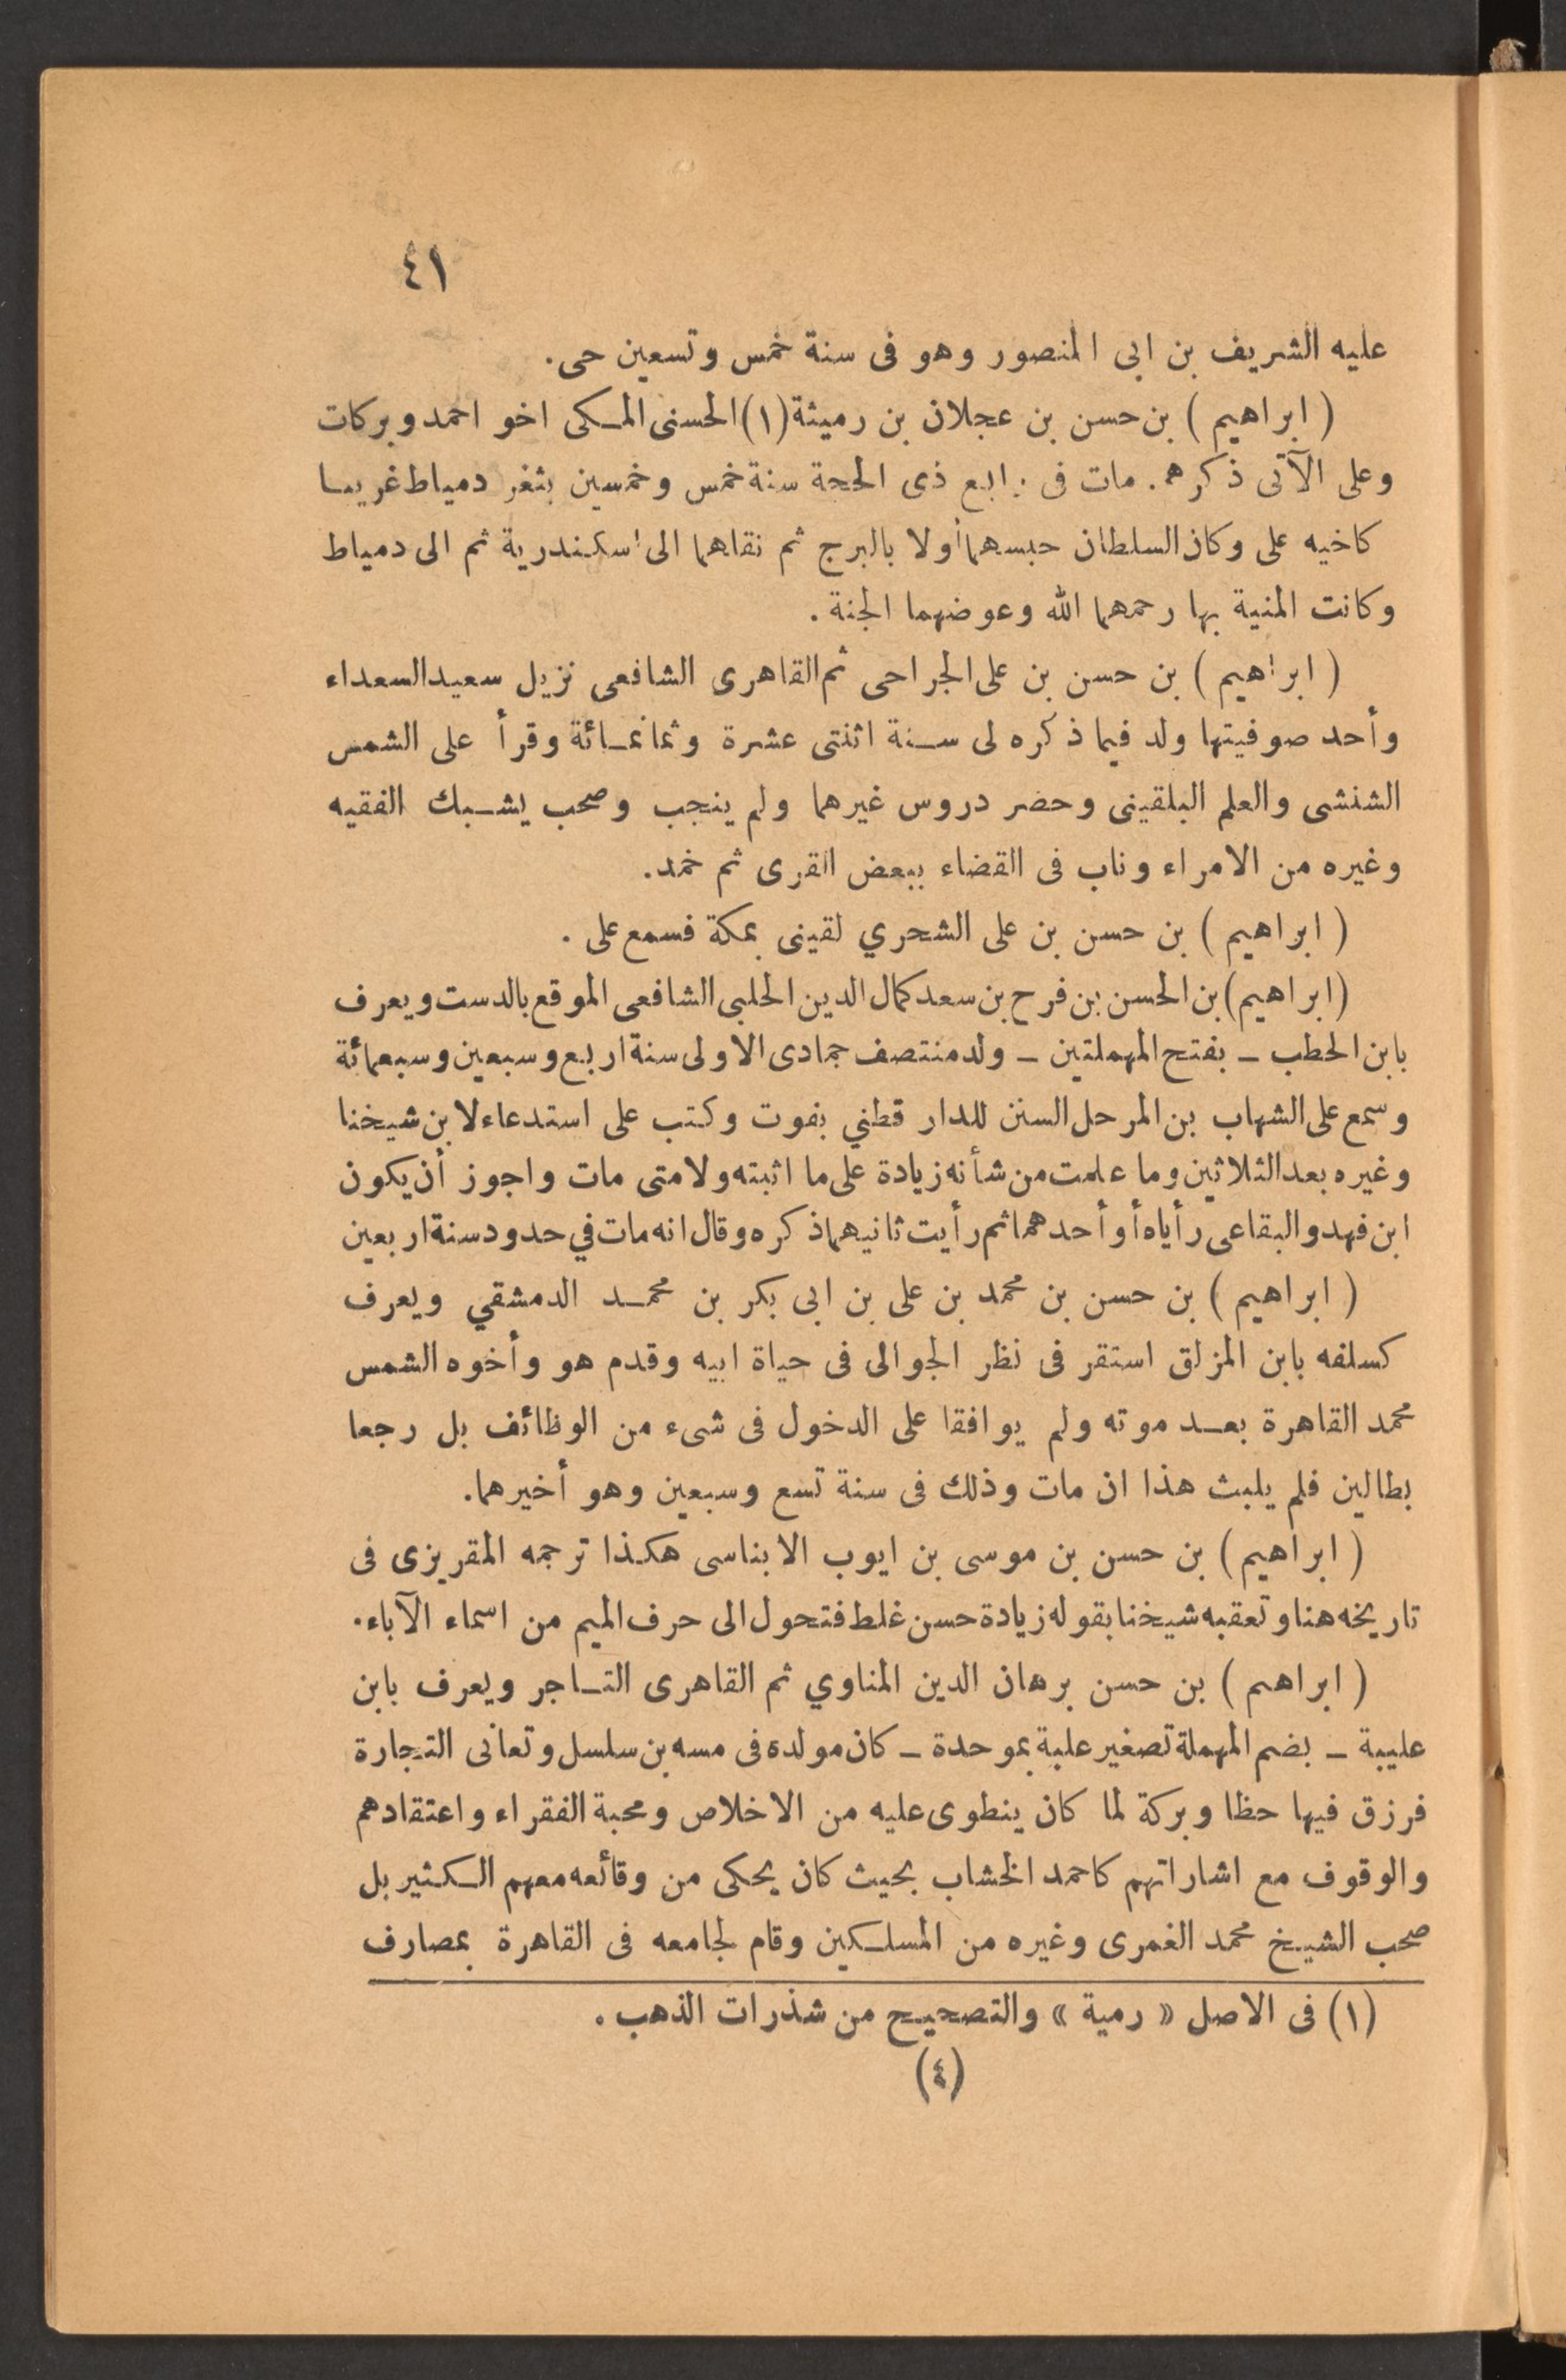 ٤١
عليه الشريف بن ابى المنصور وهو فى سنة خمس وتسعين حى.
( ابراهيم ) بن حسن بن عجلان بن رميثة (١) الحسنى المكى اخو احمد وبركات
وعلى الآتى ذكرهم. مات فى رابع ذى الحجة سنة خمس وخمسين بثغر دمياط غريبا
كاخيه على وكان السلطان حبسهما أولا بالبرج ثم نقلهما الى اسكندرية ثم الى دمياط
وكانت المنية بها رحمهما الله وعوضهما الجنة .
( ابراهيم ) بن حسن بن على الجراحى ثم القاهرى الشافعى نزيل سعيد السعداء
وأحد صوفيتها ولد فيما ذكره لى سنة اثنتى عشرة وثمانمائة وقرأ على الشمس
الشنشى والعلم البلقينى وحضر دروس غيرهما ولم ينجب وصحب يشبك الفقيه
وغيره من الامراء وناب فى القضاء ببعض القرى ثم خمد.
( ابراهيم ) بن حسن بن على الشحري لقينى بمكة فسمع على .
(ابراهيم) بن الحسن بن فرح بن سعد كمال الدين الحلبى الشافعى الموقع بالدست ويعرف
بابن الحطب ــ بفتح المهملتين ــ ولد منتصف جمادى الاولى سنة اربع وسبعين وسبعمائة
وسمع على الشهاب بن المرحل السنن للدار قطني بفوت وكتب على استدعاء لابن شيخنا
وغيره بعد الثلاثين وما علمت من شأنه زيادة على ما اثبته ولا متى مات واجوز أن يكون
ابن فهد والبقاعى رأياه أو أحدهما ثم رأيت ثانيهما ذكره وقال انه مات في حدود سنة اربعين
( ابراهيم ) بن حسن بن محمد بن على بن ابى بكر بن محمد الدمشقي ويعرف
كسلفه بابن المزلق استقر فى نظر الجوالى فى حياة ابيه وقدم هو وأخوه الشمس
محمد القاهرة بعد موته ولم يوافقا على الدخول فى شىء من الوظائف بل رجعا
بطالين فلم يلبث هذا ان مات وذلك فى سنة تسع وسبعين وهو أخيرهما.
( ابراهيم ) بن حسن بن موسى بن ايوب الابناسى هكذا ترجمه المقريزى فى
تاريخه هنا وتعقبه شيخنا بقوله زيادة حسن غلط فتحول الى حرف الميم من اسماء الآباء.
( ابراهيم ) بن حسن برهان الدين المناوي ثم القاهرى التاجر ويعرف بابن
عليبة ــ بضم المهملة تصغير علبة بموحدة ــ كان مولده فى مسه بن سلسل وتعانى التجارة
فرزق فيها حظا وبركة لما كان ينطوى عليه من الاخلاص ومحبة الفقراء واعتقادهم
والوقوف مع اشاراتهم كاحمد الخشاب بحيث كان يحكى من وقائعه معهم الكثير بل
صحب الشيخ محمد الغمرى وغيره من المسلكين وقام لجامعه فى القاهرة بمصارف
(١) فى الاصل « رمية » والتصحيح من شذرات الذهب .
(٤)